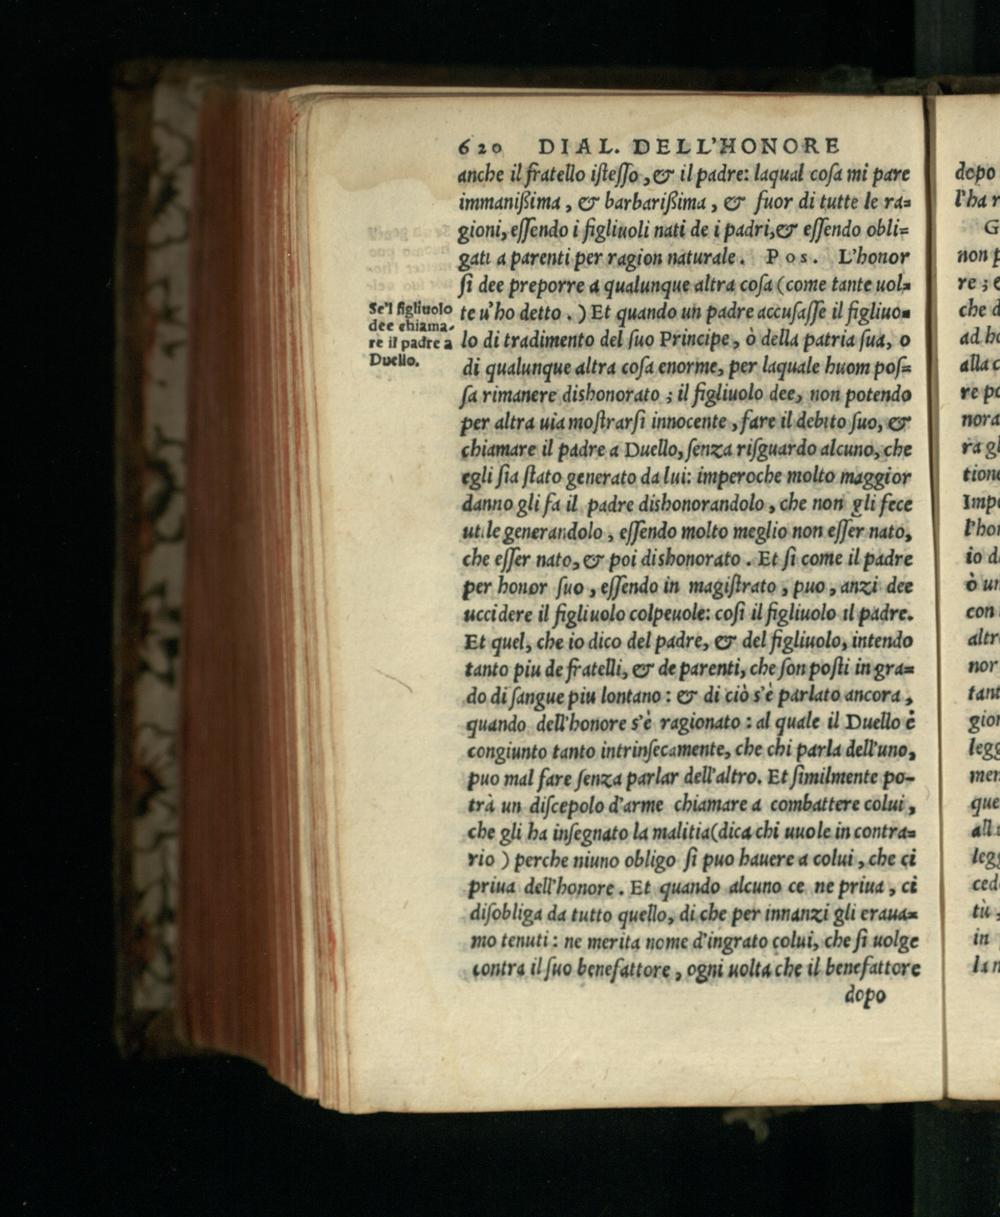 620 DIAL. DELL'HONORE
anche il fratello iſteſſo, & il padre: laqual coſa mi pare
immanißima, & barbarißima, & fuor di tutte le ra=
gioni, eſſendo i figliuoli nati de i padri,& eſſendo obli=
gati a parenti per ragion naturale. Pos. L'honor
ſi dee preporre a qualunque altra coſa (come tante uol=
te u'ho detto.) Et quando un padre accuſaſſe il figliuo=
lo di tradimento del ſuo Principe, ò della patria ſua, o
di qualunque altra coſa enorme, per laquale huom poſ=
ſa rimanere dishonorato; il figliuolo dee, non potendo
per altra uia moſtrarſi innocente, fare il debito ſuo, &
chiamare il padre a Duello, ſenza riſguardo alcuno, che
egli ſia ſtato generato da lui: imperoche molto maggior
danno gli fa il padre dishonorandolo, che non gli fece
utile generandolo, eſſendo molto meglio non eſſer nato,
che eſſer nato, & poi dishonorato. Et ſi come il padre
per honor ſuo, eſſendo in magiſtrato, puo, anzi dee
uccidere il figliuolo colpeuole: coſi il figliuolo il padre.
Et quel, che io dico del padre, & del figliuolo, intendo
tanto piu de fratelli, & de parenti, che ſon poſti in gra=
do di ſangue piu lontano: & di ciò s'è parlato ancora,
quando dell'honore s'è ragionato: al quale il Duello è
congiunto tanto intrinſecamente, che chi parla dell'uno,
puo mal fare ſenza parlar dell'altro. Et ſimilmente po-
trà un diſcepolo d'arme chiamare a combattere colui,
che gli ha inſegnato la malitia(dica chi uuole in contra=
rio) perche niuno obligo ſi puo hauere a colui, che ci
priua dell'honore. Et quando alcuno ce ne priua, ci
diſobliga da tutto quello, di che per innanzi gli eraua=
mo tenuti: ne merita nome d'ingrato colui, che ſi uolge
contra il ſuo benefattore, ogni uolta che il benefattore
dopo
Se'l figliuolo
dee chiama-
re il padre a
Duello.
dopo
l'ha r
G
non p
re; e
che d
ad ho
alla c
re po
nora
ra gl
tione
Impe
l'hon
io d
ò un
con
altr
nor
tant
gior
legg
mer
que
all
legg
ced
tù
in
la n